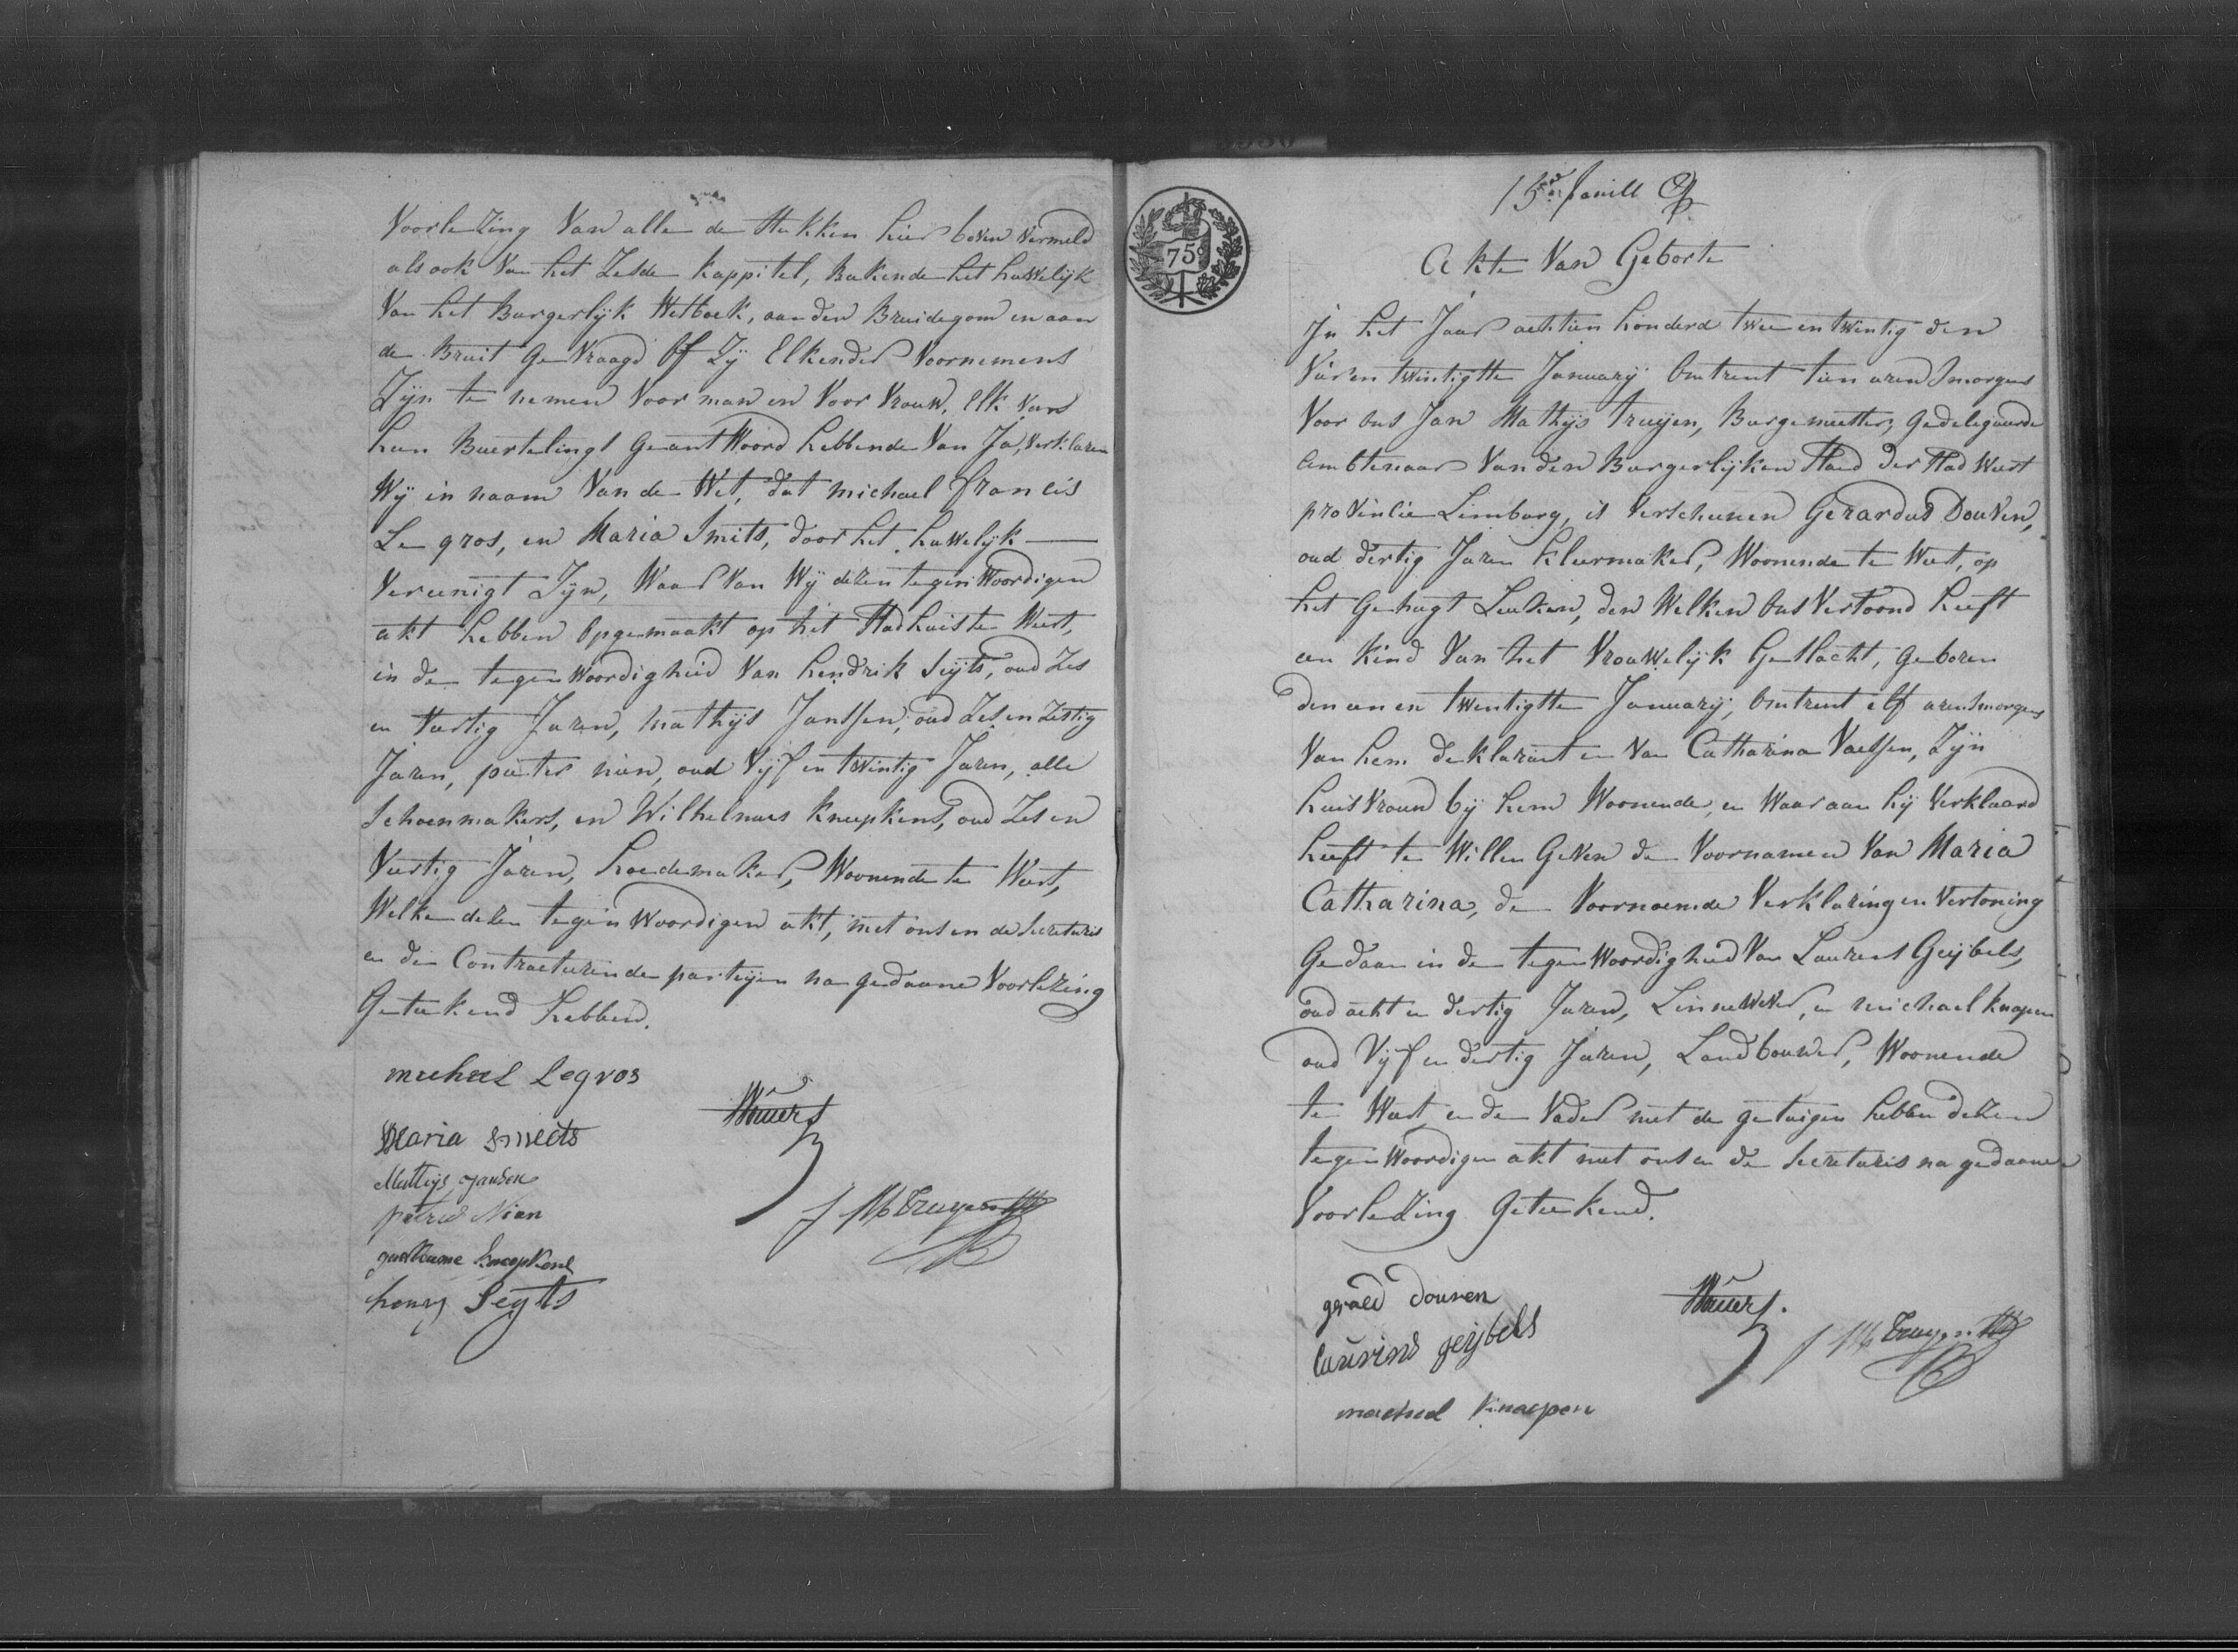 Voorlezing Van alle de stukken hier boven vermeld
als ook Van het Zesde kappitel, Rakende het huwelijk
Van het Burgerlijk Wetboek, aan den Bruidegom en aan
de Bruit GeVraagd Of Zij Elkender Voornemens
Zijn te nemen Voor man en Voor Vrouw, Elk Van
hun Buertelings GeantWoord hebbende Van Ja, Verklaren
Wij in naam Van de Wet, dat michael francis
Le gros, en Maria Smits, door het huwelijk
Vereenigt Zijn, Waar Van Wij dezen tegenWoordigen
akt hebben Opgemaakt op het Stadhuis te Weert,
in de tegenWoordigheid Van hendrik Seijts, oud Zes
en Veertig Jaren, mathijs Janssen, oud Zes en Zestig
Jaren, peeter nian, oud Vijf en twintig Jaren, alle
Schoenmakers, en Wilhelmus kneepkens, oud Zes en
Veertig Jaren, hoedemaker, Woonende te Weert,
Welke dezen tegenWoordigen akt, met ons en de Secretaris
en de Contracteerende partijen na gedaane Voorlezing
Geteekend hebben.
michael Legros
Maria Smeets
Mathijs Jansen
petrus Nian
guilleaume kneepkens
henry Seyts
Wauers
J M Truyen
75
15
Akte Van Geborte
In het Jaar achtien honderd twee en twintig den
Vier en twintigste January Omtrent tien uren Smorgens
Voor ons Jan Mathijs Truijen, Burgemeester, gedelegeerde
Ambtenaar Van den Burgerlijken Staed der Stad Weert
proVincie Limburg, is Verscheenen Gerardus DouVen,
oud dertig Jaren kleermaker, Woonende te Weert, op
het Gehugt Leuken, den Welken Ons Vertoond heeft
een kind Van het Vrouwelijk Geslacht, geboren
den een en twentigste January, Omtrent elf uren Smorgens
Van hem deklarant en Van Catharina Vaessen, Zijn
huisVrouw bij hem Woonende, en Waar aan hij Verklaard
heeft te Willen GeVen de Voornamen Van Maria
Catharina, de Voornoemde Verklaring en Vertoning
Gedaan in de tegenWoordigheid Van Laurens Geijbels,
oud acht en dertig Jaren, LinneweVer, en michael knapen
oud Vijf en dertig Jaren, Landbouwer, Woonende
te Weert, en de Vader met de getuigen hebben dezen
tegenWoordigen akt met ons en de Secretaris na gedaane
Voorlezing Geteekend.
gerard douven
laurens geijbels
machiel knaepen
Wauers.
J M Truyen